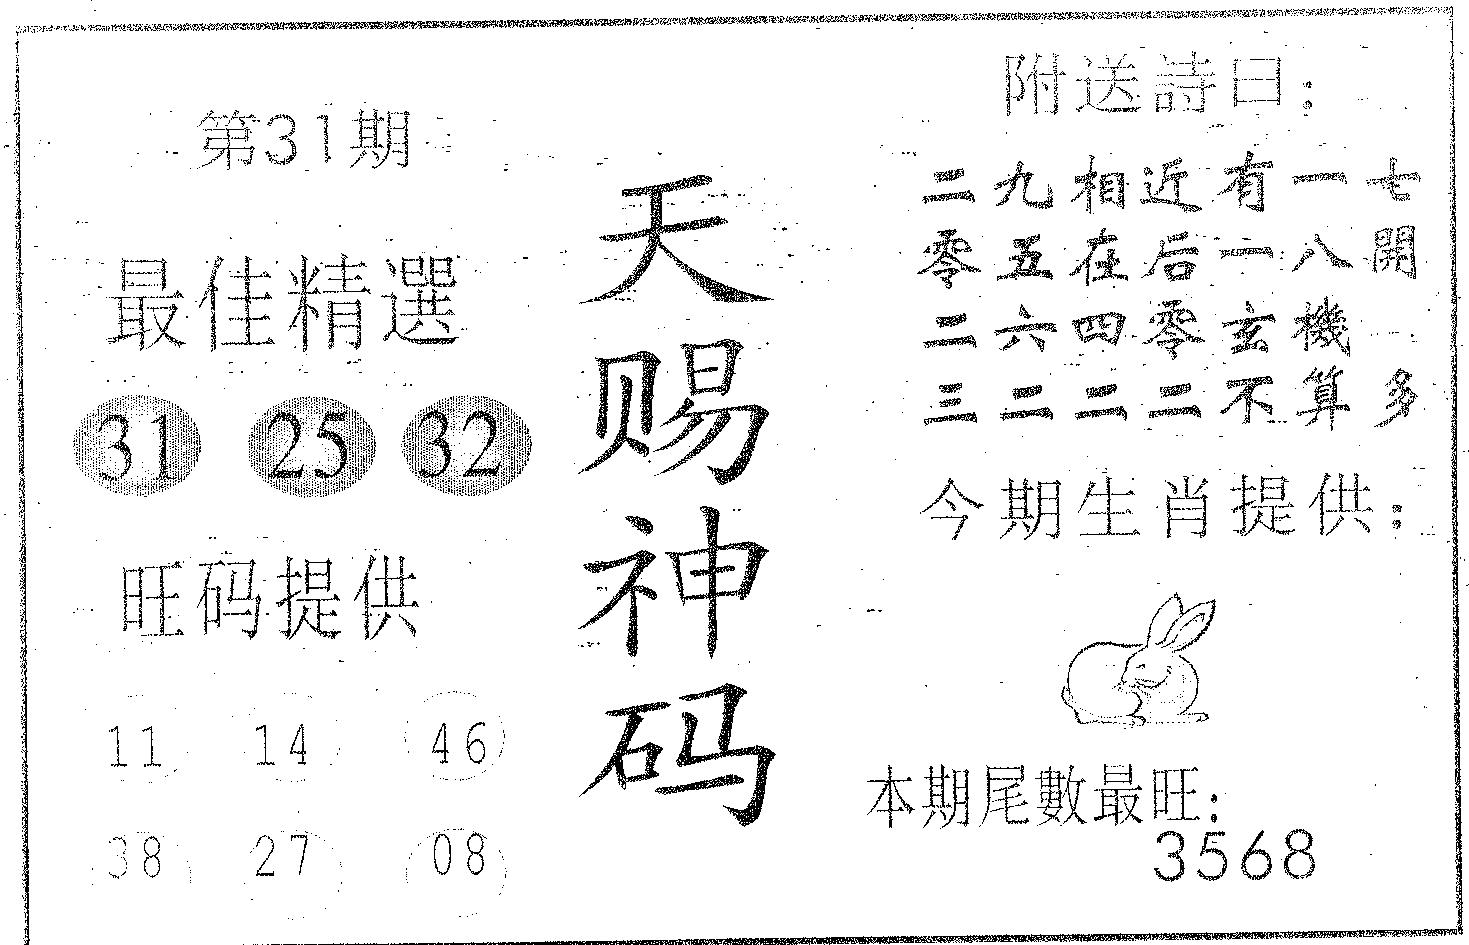 第31期
最佳精選
31 25 32
旺码提供
11 14 46
38 27 08
天赐神码
附送詩曰:
二九相近有一七
零五在后一八開
二六四零玄機
三二二二不算多
今期生肖提供:
本期尾數最旺:
3568